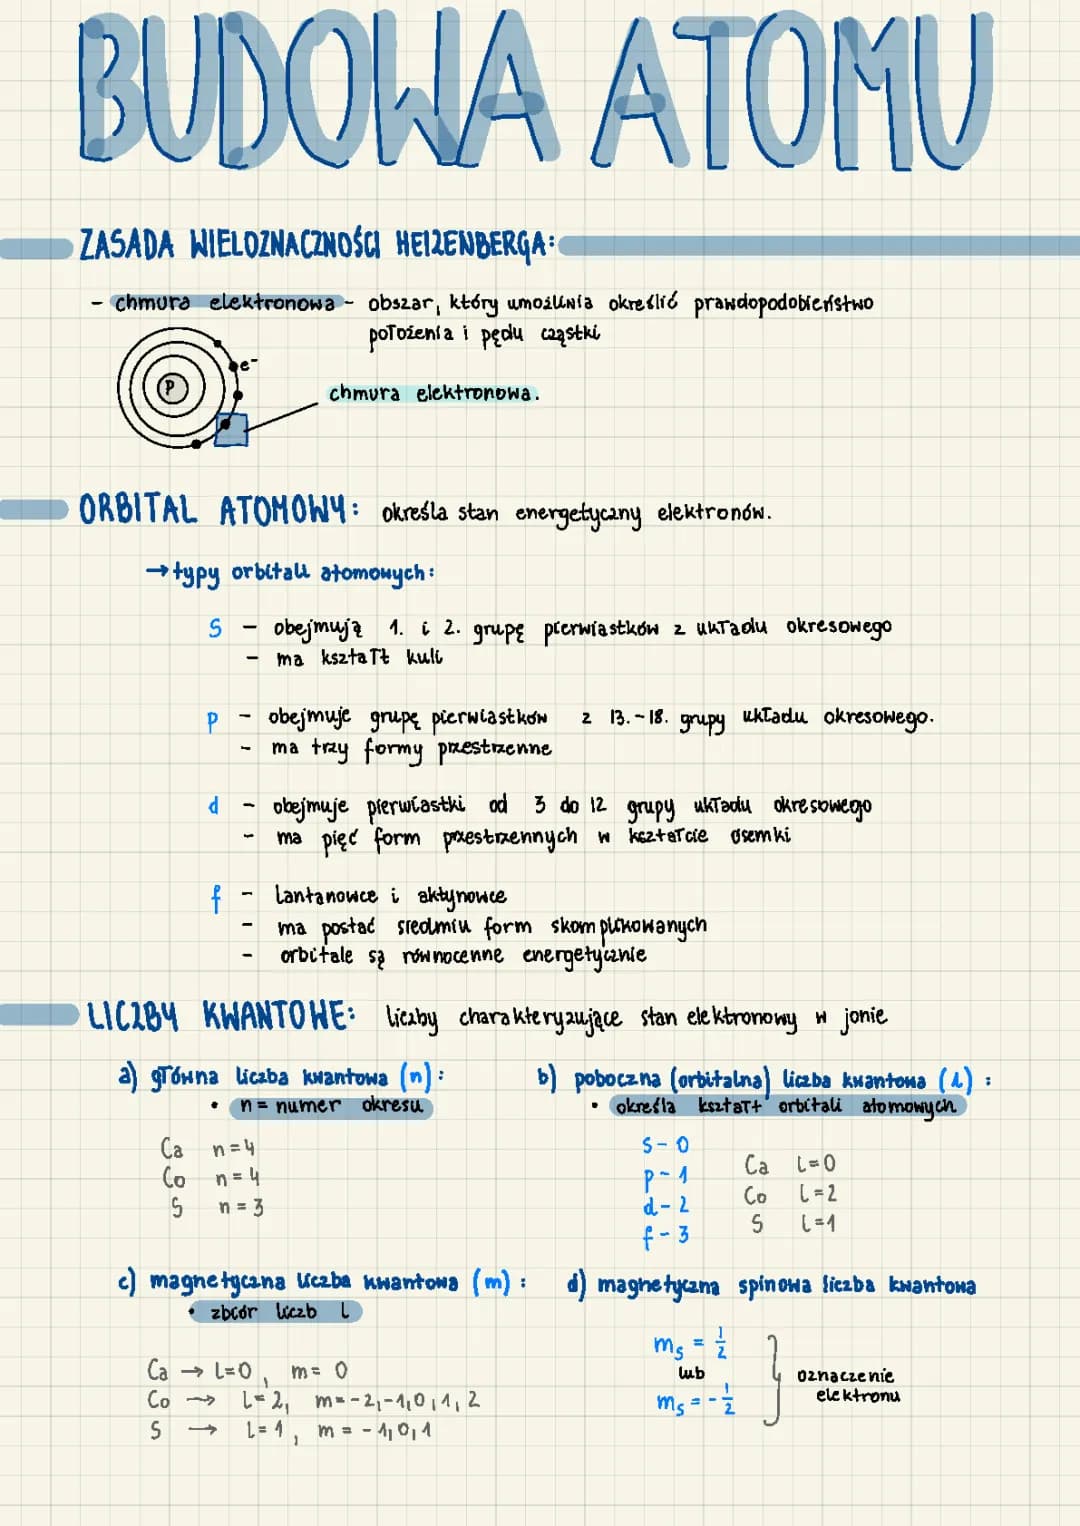 BUDOWA ATOMU
ZASADA WIELOZNACZNOŚCI HEIZENBERGA:
- chmura elektronowa - obszar, który umożliwia określić prawdopodobieństwo
położenia i pędu cząstki
e-
P
chmura elektronowa.
ORBITAL ATOMOWY: określa stan energetyczny elektronów.
→ typy orbitali atomowych:
S - obejmują 1. i 2. grupę pierwiastków z układu okresowego
- ma kształt kuli
p - obejmuje grupę pierwiastków z 13.-18. grupy układu okresowego.
- ma trzy formy przestrzenne
d - obejmuje pierwiastki od 3 do 12 grupy układu okresowego
- ma pięć form przestrzennych w kształcie ósemki
f - Lantanowce i aktynowce
- ma postać siedmiu form skomplikowanych
- orbitale są równocenne energetycznie
LICZBY KWANTOWE: liczby charakteryzujące stan elektronowy w jonie
a) główna liczba kwantowa (n):
• n = numer okresu
Ca n=4
Co n=4
S n=3
b) poboczna (orbitalna) liczba kwantowa (l):
• określa kształt orbitali atomowych
S - 0
p - 1
d - 2
f - 3
Ca l=0
Co l=2
S l=1
c) magnetyczna liczba kwantowa (m):
• zbiór liczb l
Ca → l=0, m= 0
Co → l=2, m=-2,-1,0,1,2
S → l=1, m = -1,0,1
d) magnetyczna spinowa liczba kwantowa
ms = 1/2
lub
ms = -1/2
oznaczenie
elektronu